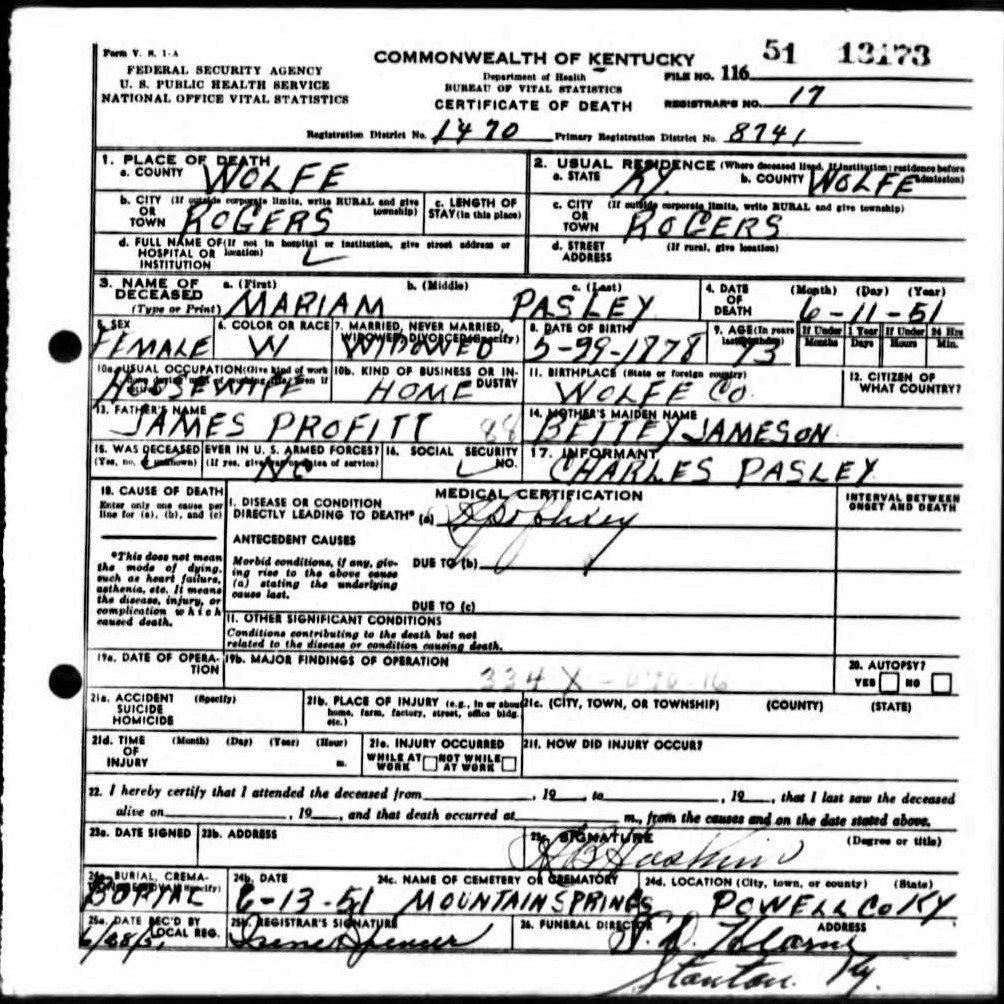 Form V. S. 1-A
FEDERAL SECURITY AGENCY
U. S. PUBLIC HEALTH SERVICE
NATIONAL OFFICE VITAL STATISTICS
COMMONWEALTH OF KENTUCKY
Department of Health
BUREAU OF VITAL STATISTICS
CERTIFICATE OF DEATH
FILE NO. 116 51 13173
REGISTRAR'S NO. 17
Registration District No. 1470 Primary Registration District No. 8741
1. PLACE OF DEATH
a. COUNTY WOLFE
2. USUAL RESIDENCE (Where deceased lived. If institution: residence before admission)
a. STATE KY b. COUNTY WOLFE
b. CITY OR TOWN (If outside corporate limits, write RURAL and give township) ROGERS
c. LENGTH OF STAY (in this place)
c. CITY OR TOWN (If outside corporate limits, write RURAL and give township) ROGERS
d. FULL NAME OF HOSPITAL OR INSTITUTION (If not in hospital or institution, give street address or location)
d. STREET ADDRESS (If rural, give location)
3. NAME OF DECEASED (Type or Print) a. (First) b. (Middle) c. (Last)
MARIAM PASLEY
4. DATE OF DEATH (Month) (Day) (Year)
6-11-51
5. SEX FEMALE
6. COLOR OR RACE W
7. MARRIED, NEVER MARRIED, WIDOWED, DIVORCED (Specify) WIDOWED
8. DATE OF BIRTH 5-29-1878
9. AGE (In years last birthday) 73
If Under 1 Year Months Days
If Under 24 Hrs Hours Min.
10a. USUAL OCCUPATION (Give kind of work done during most of working life, even if retired) HOUSEWIFE
10b. KIND OF BUSINESS OR INDUSTRY HOME
11. BIRTHPLACE (State or foreign country) WOLFE CO.
12. CITIZEN OF WHAT COUNTRY?
13. FATHER'S NAME
JAMES PROFITT 88
14. MOTHER'S MAIDEN NAME
BETTEY JAMESON
15. WAS DECEASED EVER IN U. S. ARMED FORCES?
(Yes, no, or unknown) (If yes, give war or dates of service) NO
16. SOCIAL SECURITY NO.
17. INFORMANT
CHARLES PASLEY
18. CAUSE OF DEATH
Enter only one cause per line for (a), (b), and (c)
*This does not mean the mode of dying, such as heart failure, asthenia, etc. It means the disease, injury, or complication which caused death.
MEDICAL CERTIFICATION
I. DISEASE OR CONDITION
DIRECTLY LEADING TO DEATH* (a)
ANTECEDENT CAUSES
Morbid conditions, if any, giving rise to the above cause (a) stating the underlying cause last.
DUE TO (b)
DUE TO (c)
II. OTHER SIGNIFICANT CONDITIONS
Conditions contributing to the death but not
related to the disease or condition causing death.
INTERVAL BETWEEN
ONSET AND DEATH
19a. DATE OF OPERATION
19b. MAJOR FINDINGS OF OPERATION
334 X
20. AUTOPSY?
YES NO
21a. ACCIDENT SUICIDE HOMICIDE (Specify)
21b. PLACE OF INJURY (e.g., in or about home, farm, factory, street, office bldg. etc.)
21c. (CITY, TOWN, OR TOWNSHIP) (COUNTY) (STATE)
21d. TIME OF INJURY (Month) (Day) (Year) (Hour) m.
21e. INJURY OCCURRED
WHILE AT WORK NOT WHILE AT WORK
21f. HOW DID INJURY OCCUR?
22. I hereby certify that I attended the deceased from , 19 , to , 19 , that I last saw the deceased
alive on , 19 , and that death occurred at m., from the causes and on the date stated above.
23a. DATE SIGNED
23b. ADDRESS
23c. SIGNATURE (Degree or title)
Haskins
24a. BURIAL, CREMATION, REMOVAL (Specify) BURIAL
24b. DATE
6-13-51
24c. NAME OF CEMETERY OR CREMATORY
MOUNTAIN SPRINGS
24d. LOCATION (City, town, or county) (State)
POWELL CO KY
25a. DATE REC'D BY LOCAL REG.
25b. REGISTRAR'S SIGNATURE
Irene Spencer
26. FUNERAL DIRECTOR ADDRESS
Stanton. Ky.